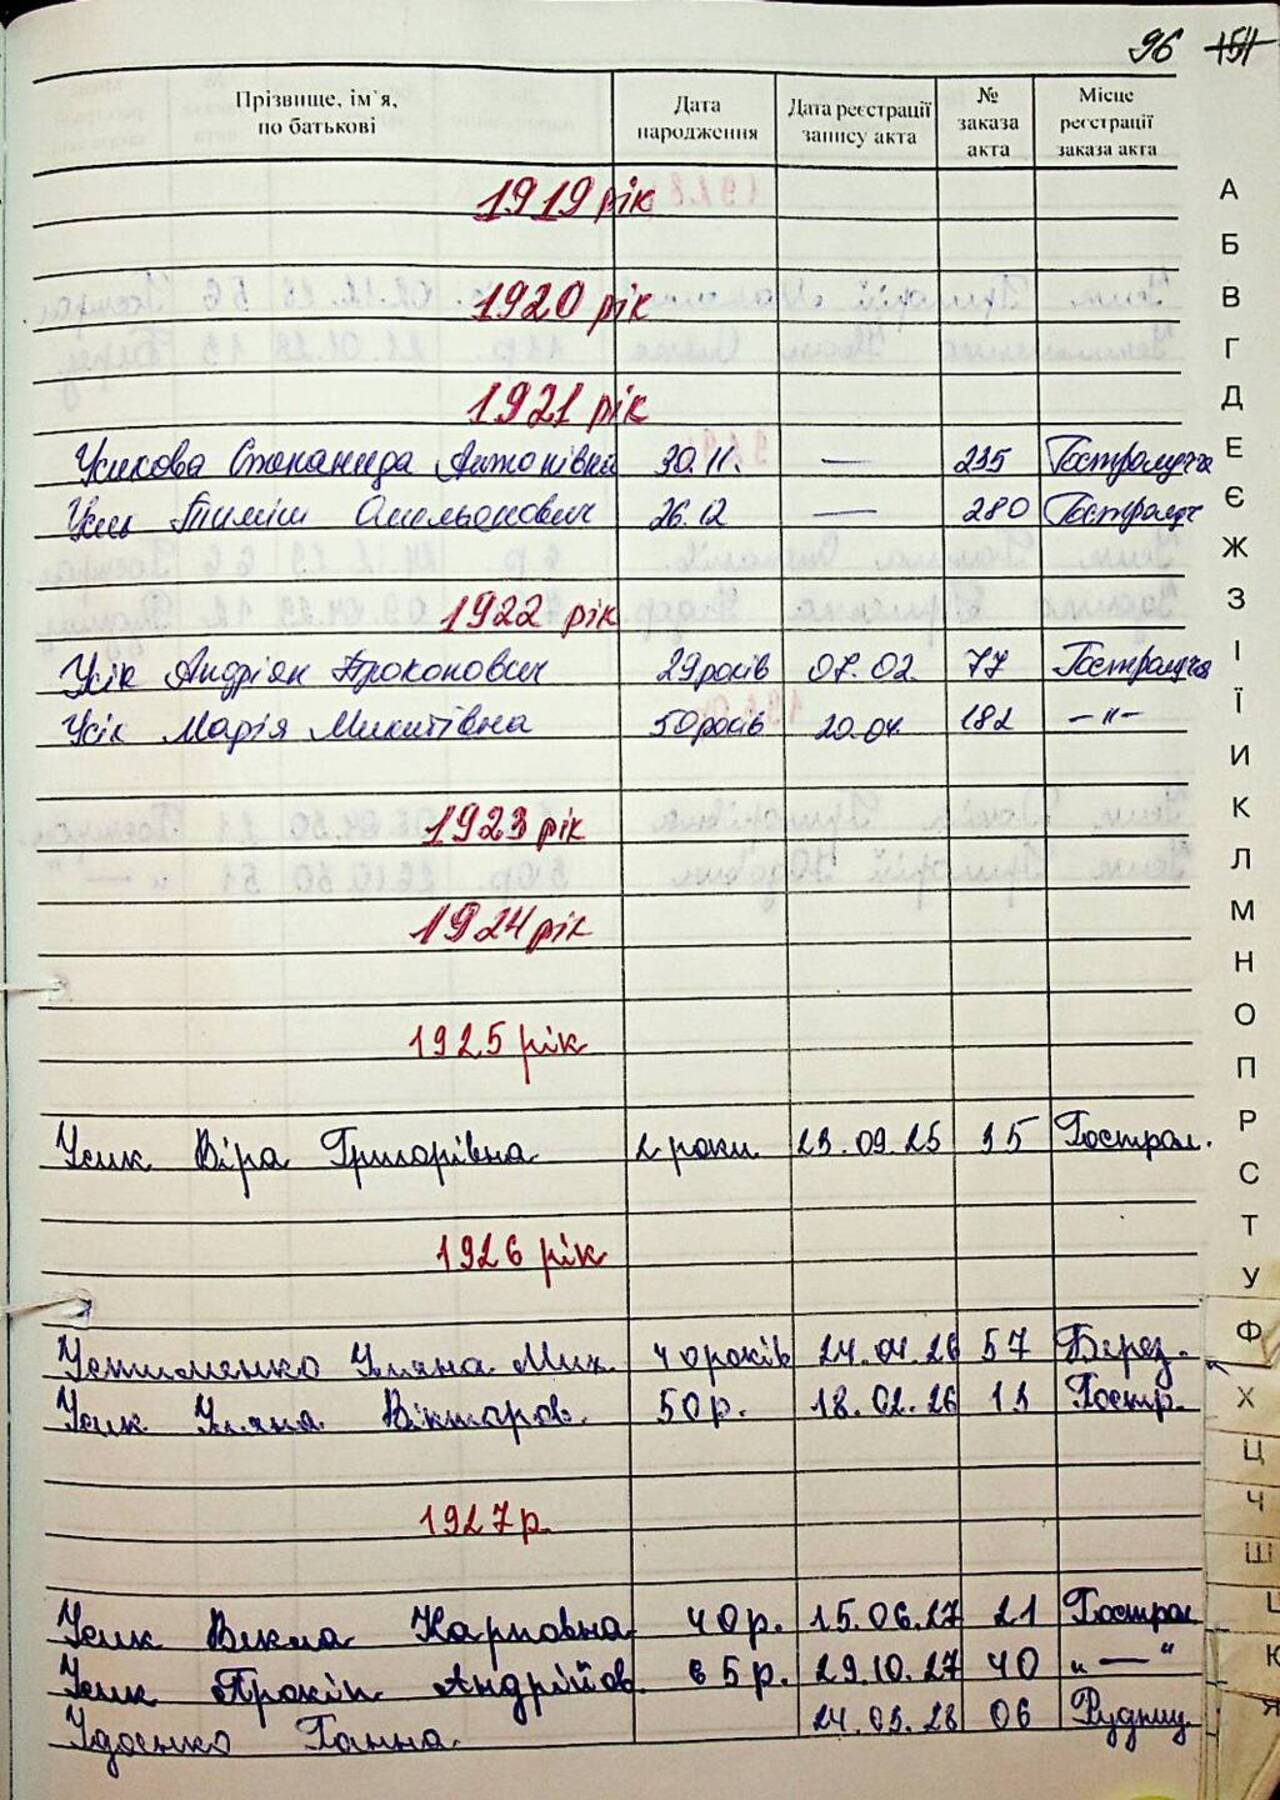 96 151
Прізвище, ім`я, по батькові Дата народження Дата реєстрації запису акта № заказа акта Місце реєстрації заказа акта
1919 рік
1920 рік
1921 рік
Усикова Степанида Антонівна 30.11. — 235 Гостролуччя
Усик Тиміш Омельонович 26.12 — 280 Гостролуч
1922 рік
Усік Андріян Прокопович 29 років 07.02. 77 Гостролуччя
Усік Марія Микитівна 50 років 20.04. 182 – " –
1923 рік
1924 рік
1925 рік
Усик Віра Григорівна 2 роки 23.09.25 35 Гострол.
1926 рік
Устименко Уляна Мих. 40 років 24.04.26 57 Берез.
Усик Уляна Вікторов. 50 р. 18.02.26 13 Гостр.
1927 р.
Усик Векла Карповна 40 р. 15.06.27 21 Гострол
Усик Прокіп Андрійов. 65 р. 29.10.27 40 " — "
Удоєнко Ганна 24.03.28 06 Рудниц.
А
Б
В
Г
Д
Е
Є
Ж
З
І
Ї
И
К
Л
М
Н
О
П
Р
С
Т
У
Ф
Х
Ц
Ч
Ш
Я